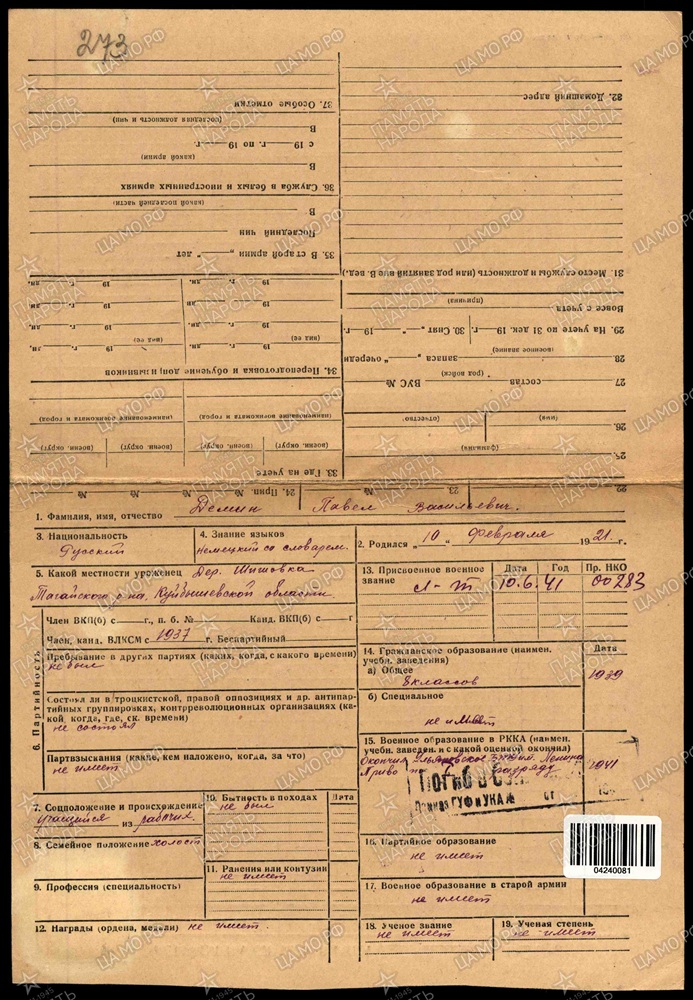 273
37. Особые отметки
(последняя должность и чин)
В
с 19 г. по 19 г.
(какой армии)
В
36. Служба в белых и иностранных армиях
(какой последней части)
В
Последний чин
35. В старой армии „ “ лет
19 г. дн. 19 г. дн.
19 г. дн. 19 г. дн.
19 г. дн. 19 г. дн.
19 г. дн. 19 г. дн.
34. Переподготовка и обучение
(наименование военкомата и город) (наименование военкомата и город)
(военн. округ) (военн. округ) (военн. округ) (военн. округ)
33. Где на учете
32. Домашний адрес
31. Место службы и должность (или род занятий вне В. вед.)
(причина)
Вовсе с учета
29. На учете по 31 дек. 19 г. 30. Снят „ “ 19 г.
(военное звание)
28. запаса „ “ очереди
(род войск)
27 состав ВУС №
(имя) (отчество)
26.
(фамилия)
25.
24. Прип. № № №
23
22
1. Фамилия, имя, отчество Демин Павел Васильевич.
3. Национальность Русский
4. Знание языков немецкий со словарем.
2. Родился „10“ февраля 1921 г.
5. Какой местности уроженец Дер. Шишовка
Тагайского р-на, Куйбышевской области.
13. Присвоенное военное звание Дата Год Пр. НКО
Л-т 10.6.41 00283
6. Партийность
Член ВКП(б) с г., п. б. № Канд. ВКП(б) с г
Член, канд. ВЛКСМ с 1937 г. Беспартийный
Пребывание в других партиях (каких, когда, с какого времени)
не был
Состоял ли в троцкистской, правой оппозициях и др. антипар-
тийных группировках, контрреволюционных организациях (ка-
кой, когда, где, ск. времени)
не состоял
Партвзыскания (какие, кем наложено, когда, за что)
не имеет
14. Гражданское образование (наимен. учебн. заведения) Дата
а) Общее
8 классов 1939
б) Специальное
не имеет
15. Военное образование в РККА (наимен.
учебн. заведен. и с какой оценкой окончил)
Окончил Ульяновское Ленина
по разряду 1941
Приказ ГУФ и УКА № от 19
7. Соцположение и происхождение
учащийся из рабочих
8. Семейное положение холост
9. Профессия (специальность)
10. Бытность в походах Дата
не был
11. Ранения или контузии
не имеет
12. Награды (ордена, медали) не имеет.
16. Партийное образование
не имеет
17. Военное образование в старой армии
не имеет
18. Ученое звание
не имеет
19. Ученая степень
не имеет
04240081
ПАМЯТЬ НАРОДА
ЦАМО.РФ